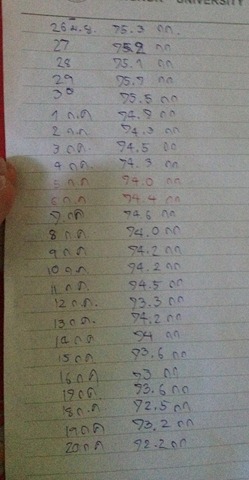 UNIVERSITY
26 มิ.ย. 75.3 กก.
27 75.2 กก
28 75.1 กก
29 75.7 กก
30 75.5 กก
1 ก.ค 74.8 กก
2 ก.ค. 74.3 กก
3 ก.ค. 74.5 กก
4 ก.ค 74.3 กก
5 ก.ค 74.0 กก
6 ก.ค 74.4 กก
7 ก.ค 74.6 กก
8 ก.ค 74.0 กก
9 ก.ค 74.2 กก
10 ก.ค 74.2 กก
11 ก.ค 74.5 กก
12 ก.ค. 73.3 กก
13 ก.ค. 74.2 กก
14 ก.ค 74 กก
15 ก.ค 73.6 กก
16 ก.ค 73 กก
17 ก.ค 73.6 กก
18 ก.ค 72.5 กก
19 ก.ค 73.2 กก
20 ก.ค 72.2 กก